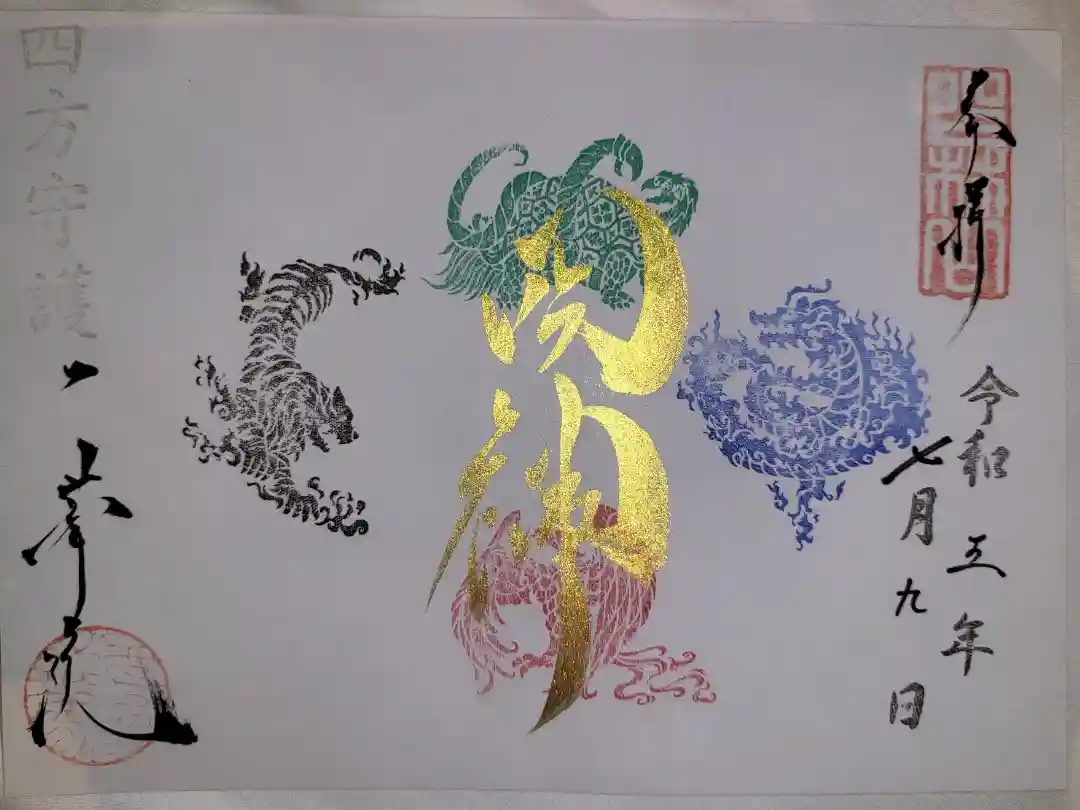 奉拝
令和五年
七月九日
神
四方守護
一峯院